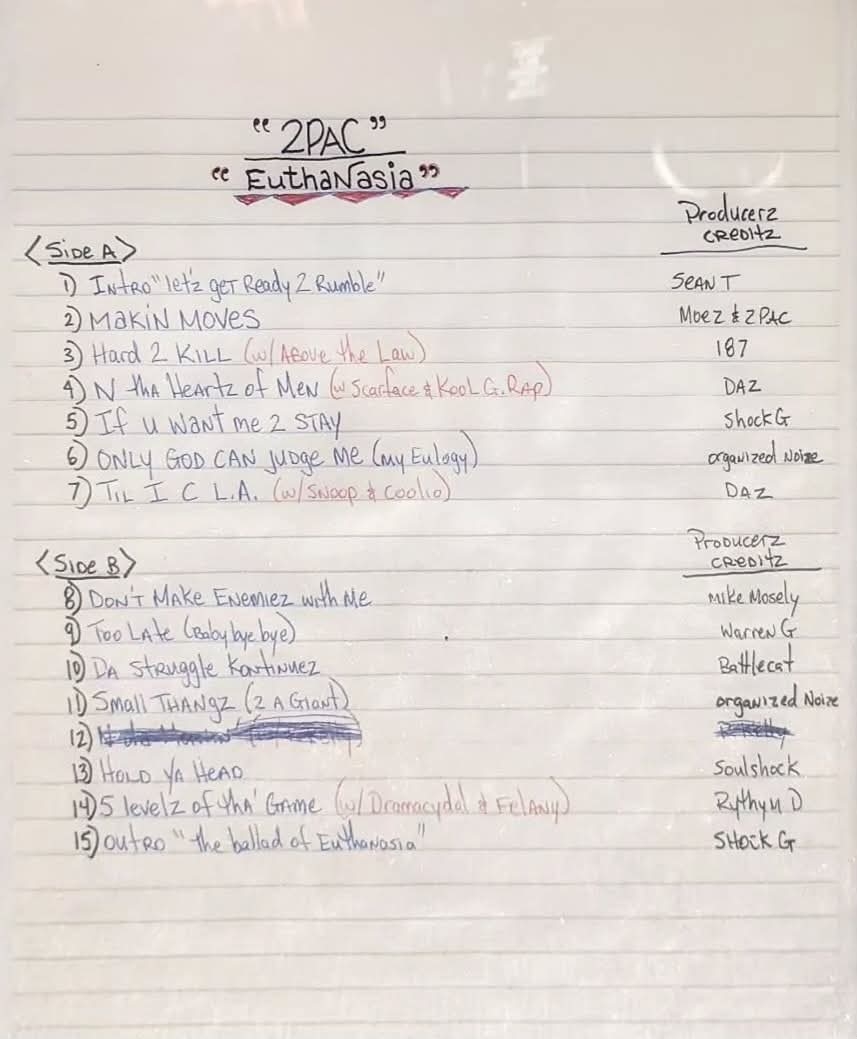 "2PAC"
"EuthaNasia"
Producerz
CREDITZ
<Side A>
1) INTRO "let'z get Ready 2 Rumble" SEAN T
2) MAKIN MOVES Moez & 2PAC
3) Hard 2 KILL (w/ Above the Law) 187
4) N tha Heartz of Men (w Scarface & Kool G. Rap) DAZ
5) If u want me 2 STAY Shock G
6) ONLY GOD CAN JUDGE ME (my Eulogy) organized Noize
7) TIL I C L.A. (w/ Snoop & Coolio) DAZ
Producerz
CREDITZ
<Side B>
8) DON'T MAKE Enemiez with Me Mike Mosely
9) Too Late (Baby bye bye) Warren G
10) DA Struggle Kontinuez Battlecat
11) Small THANGZ (2 A Giant) organized Noize
12)
13) HOLD YA HEAD Soulshock
14) 5 levelz of tha' GAME (w/ Dramacydal & FelAny) Rythym D
15) OUTRO "the ballad of Euthanasia" SHOCK G